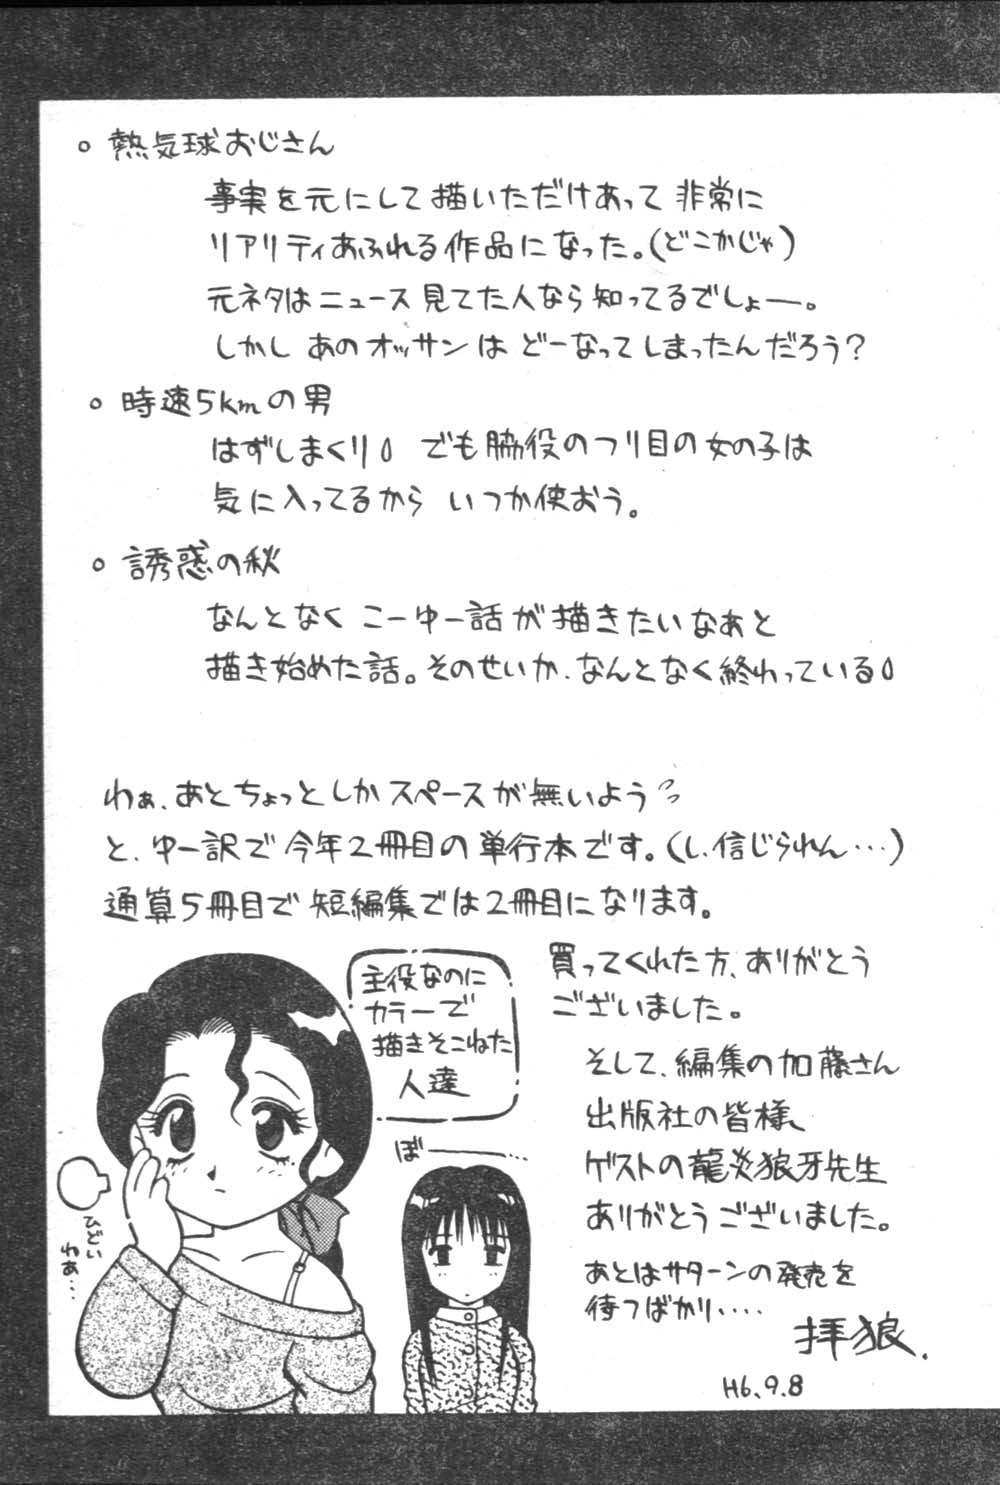 ○ 熱気球おじさん
事実を元にして描いただけあって 非常に
リアリティあふれる作品になった。(どこかじゃ)
元ネタはニュース見てた人なら知ってるでしょー。
しかし あのオッサンは どーなってしまったんだろう?
○ 時速5kmの男
はずしまくり でも脇役のつり目の女の子は
気に入ってるから いつか使おう。
○ 誘惑の秋
なんとなく こーゆー話が描きたいなぁと
描き始めた話。そのせいか、なんとなく終わっている
わぁ、あとちょっとしかスペースが無いよう
と、ゆー訳で今年2冊目の単行本です。(し、信じられん…)
通算5冊目で短編集では2冊目になります。
買ってくれた方、ありがとう
ございました。
そして、編集の加藤さん
出版社の皆様、
ゲストの龍炎狼牙先生
ありがとうございました。
あとはサターンの発売を
待つばかり‥‥
拝狼.
H6.9.8
主役なのに
カラーで
描きそこねた
人達
ぼーーー…
ひどい
わぁ…